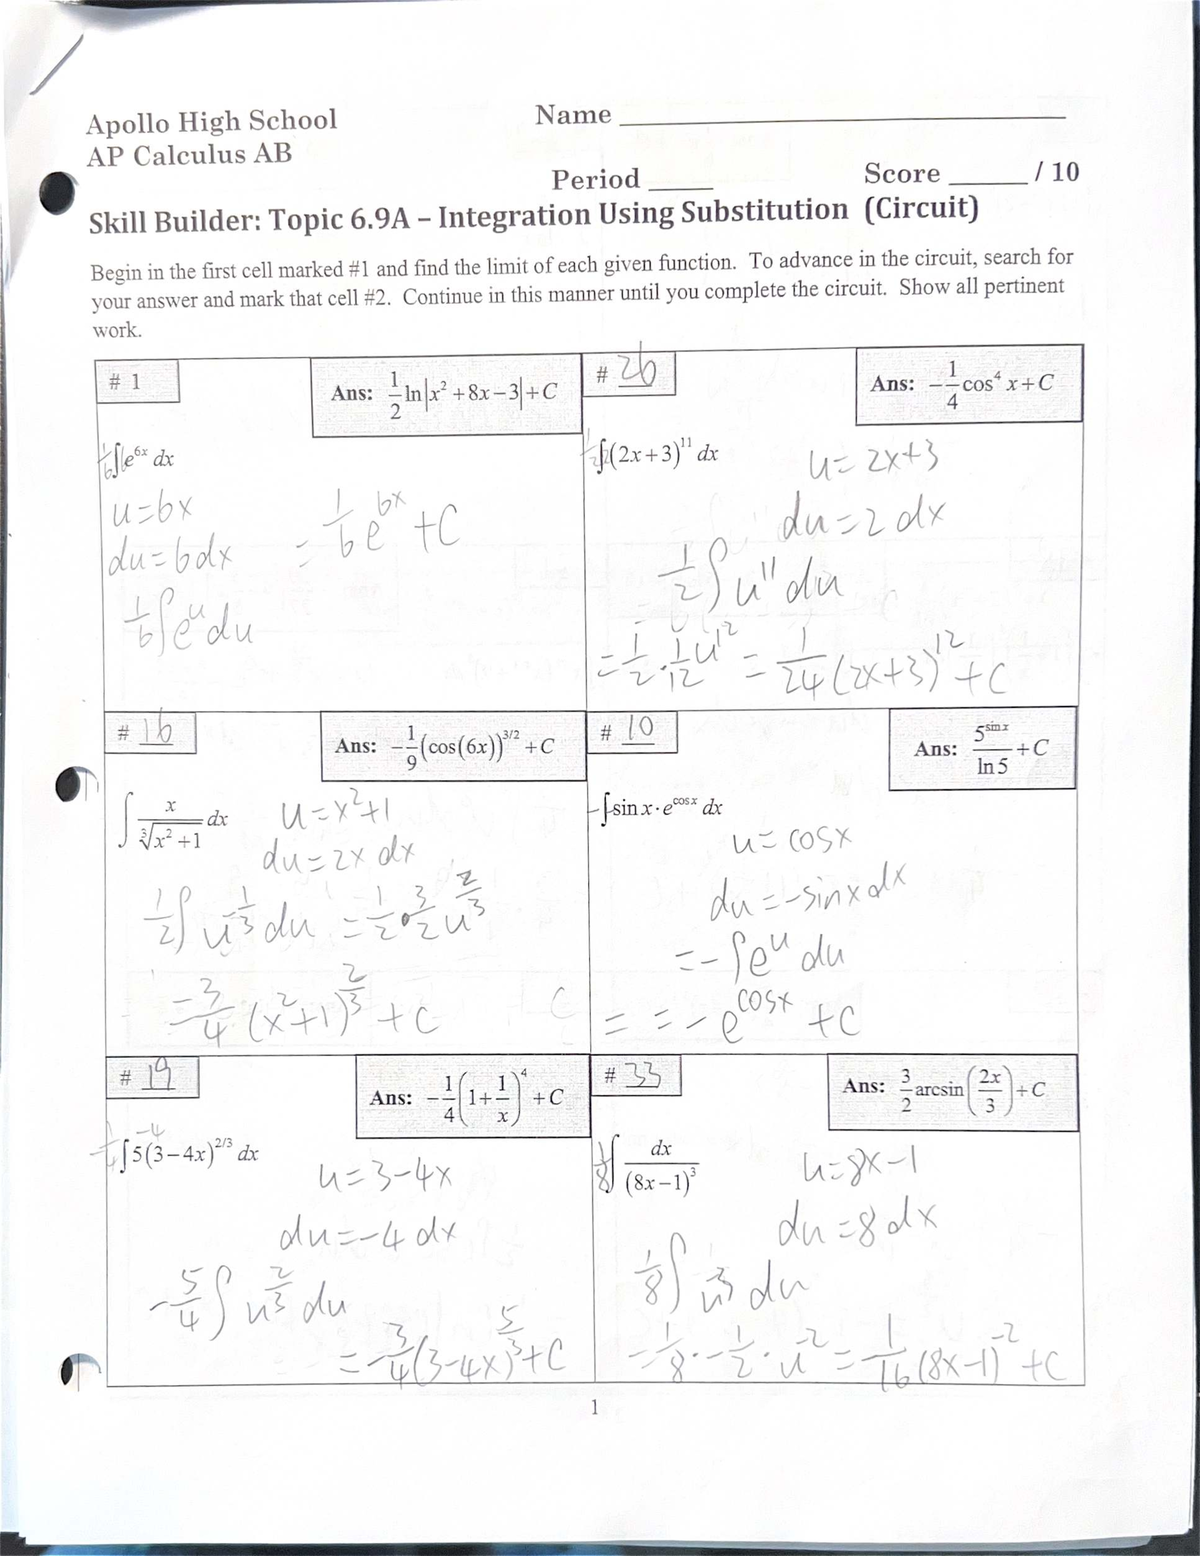 Apollo High School
Name
AP Calculus AB
Period
Score / 10
Skill Builder: Topic 6.9A – Integration Using Substitution (Circuit)
Begin in the first cell marked #1 and find the limit of each given function. To advance in the circuit, search for
your answer and mark that cell #2. Continue in this manner until you complete the circuit. Show all pertinent
work.
# 1
Ans: 1/2 ln|x² + 8x − 3| + C
1/6 ∫ 6 e^(6x) dx
u = 6x
du = 6dx
1/6 ∫ e^u du
= 1/6 e^(6x) + C
# 26
Ans: −1/4 cos⁴ x + C
1/2 ∫ 2(2x+3)^11 dx
u = 2x+3
du = 2 dx
1/2 ∫ u^11 du
= 1/2 · 1/12 u^12 = 1/24 (2x+3)^12 + C
# 16
Ans: −1/9 (cos(6x))^(3/2) + C
∫ x/∛(x² + 1) dx
u = x²+1
du = 2x dx
1/2 ∫ u^(-1/3) du = 1/2 · 3/2 u^(2/3)
= 3/4 (x²+1)^(2/3) + C
# 10
Ans: 5^(sin x)/ln 5 + C
−∫ -sin x · e^(cos x) dx
u = cosx
du = -sinx dx
= -∫ e^u du
= = -e^(cosx) + C
# 19
Ans: −1/4 (1 + 1/x)⁴ + C
-1/4 ∫ -4 5(3−4x)^(2/3) dx
u = 3-4x
du = -4 dx
-5/4 ∫ u^(2/3) du
= -3/4 (3-4x)^(5/3) + C
# 33
Ans: 3/2 arcsin(2x/3) + C
1/8 ∫ dx/(8x−1)³
u = 8x-1
du = 8 dx
1/8 ∫ u^(-3) du
= 1/8 · -1/2 · u^(-2) = -1/16 (8x-1)^(-2) + C
1